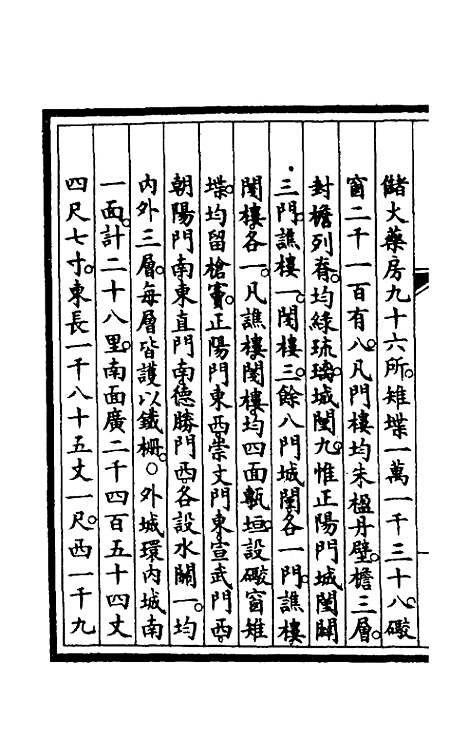 儲火藥房九十六所。雉堞一萬一千三十八。礮
窗二千一百有八。凡門樓均朱楹丹壁。檐三層。
封檐列脊。均綠琉璃。城闉九。惟正陽門城闉闢
三門。譙樓一。閏樓三。餘八門城闉各一門。譙樓
閏樓各一。凡譙樓閏樓均四面甎垣。設礮窗。雉
堞均留槍竇。正陽門東西崇文門東宣武門西
朝陽門南東直門南德勝門西各設水關一。均
內外三層。每層皆護以鐵柵。○外城環內城南
一面。計二十八里。南面廣二千四百五十四丈
四尺七寸。東長一千八十五丈一尺。西一千九